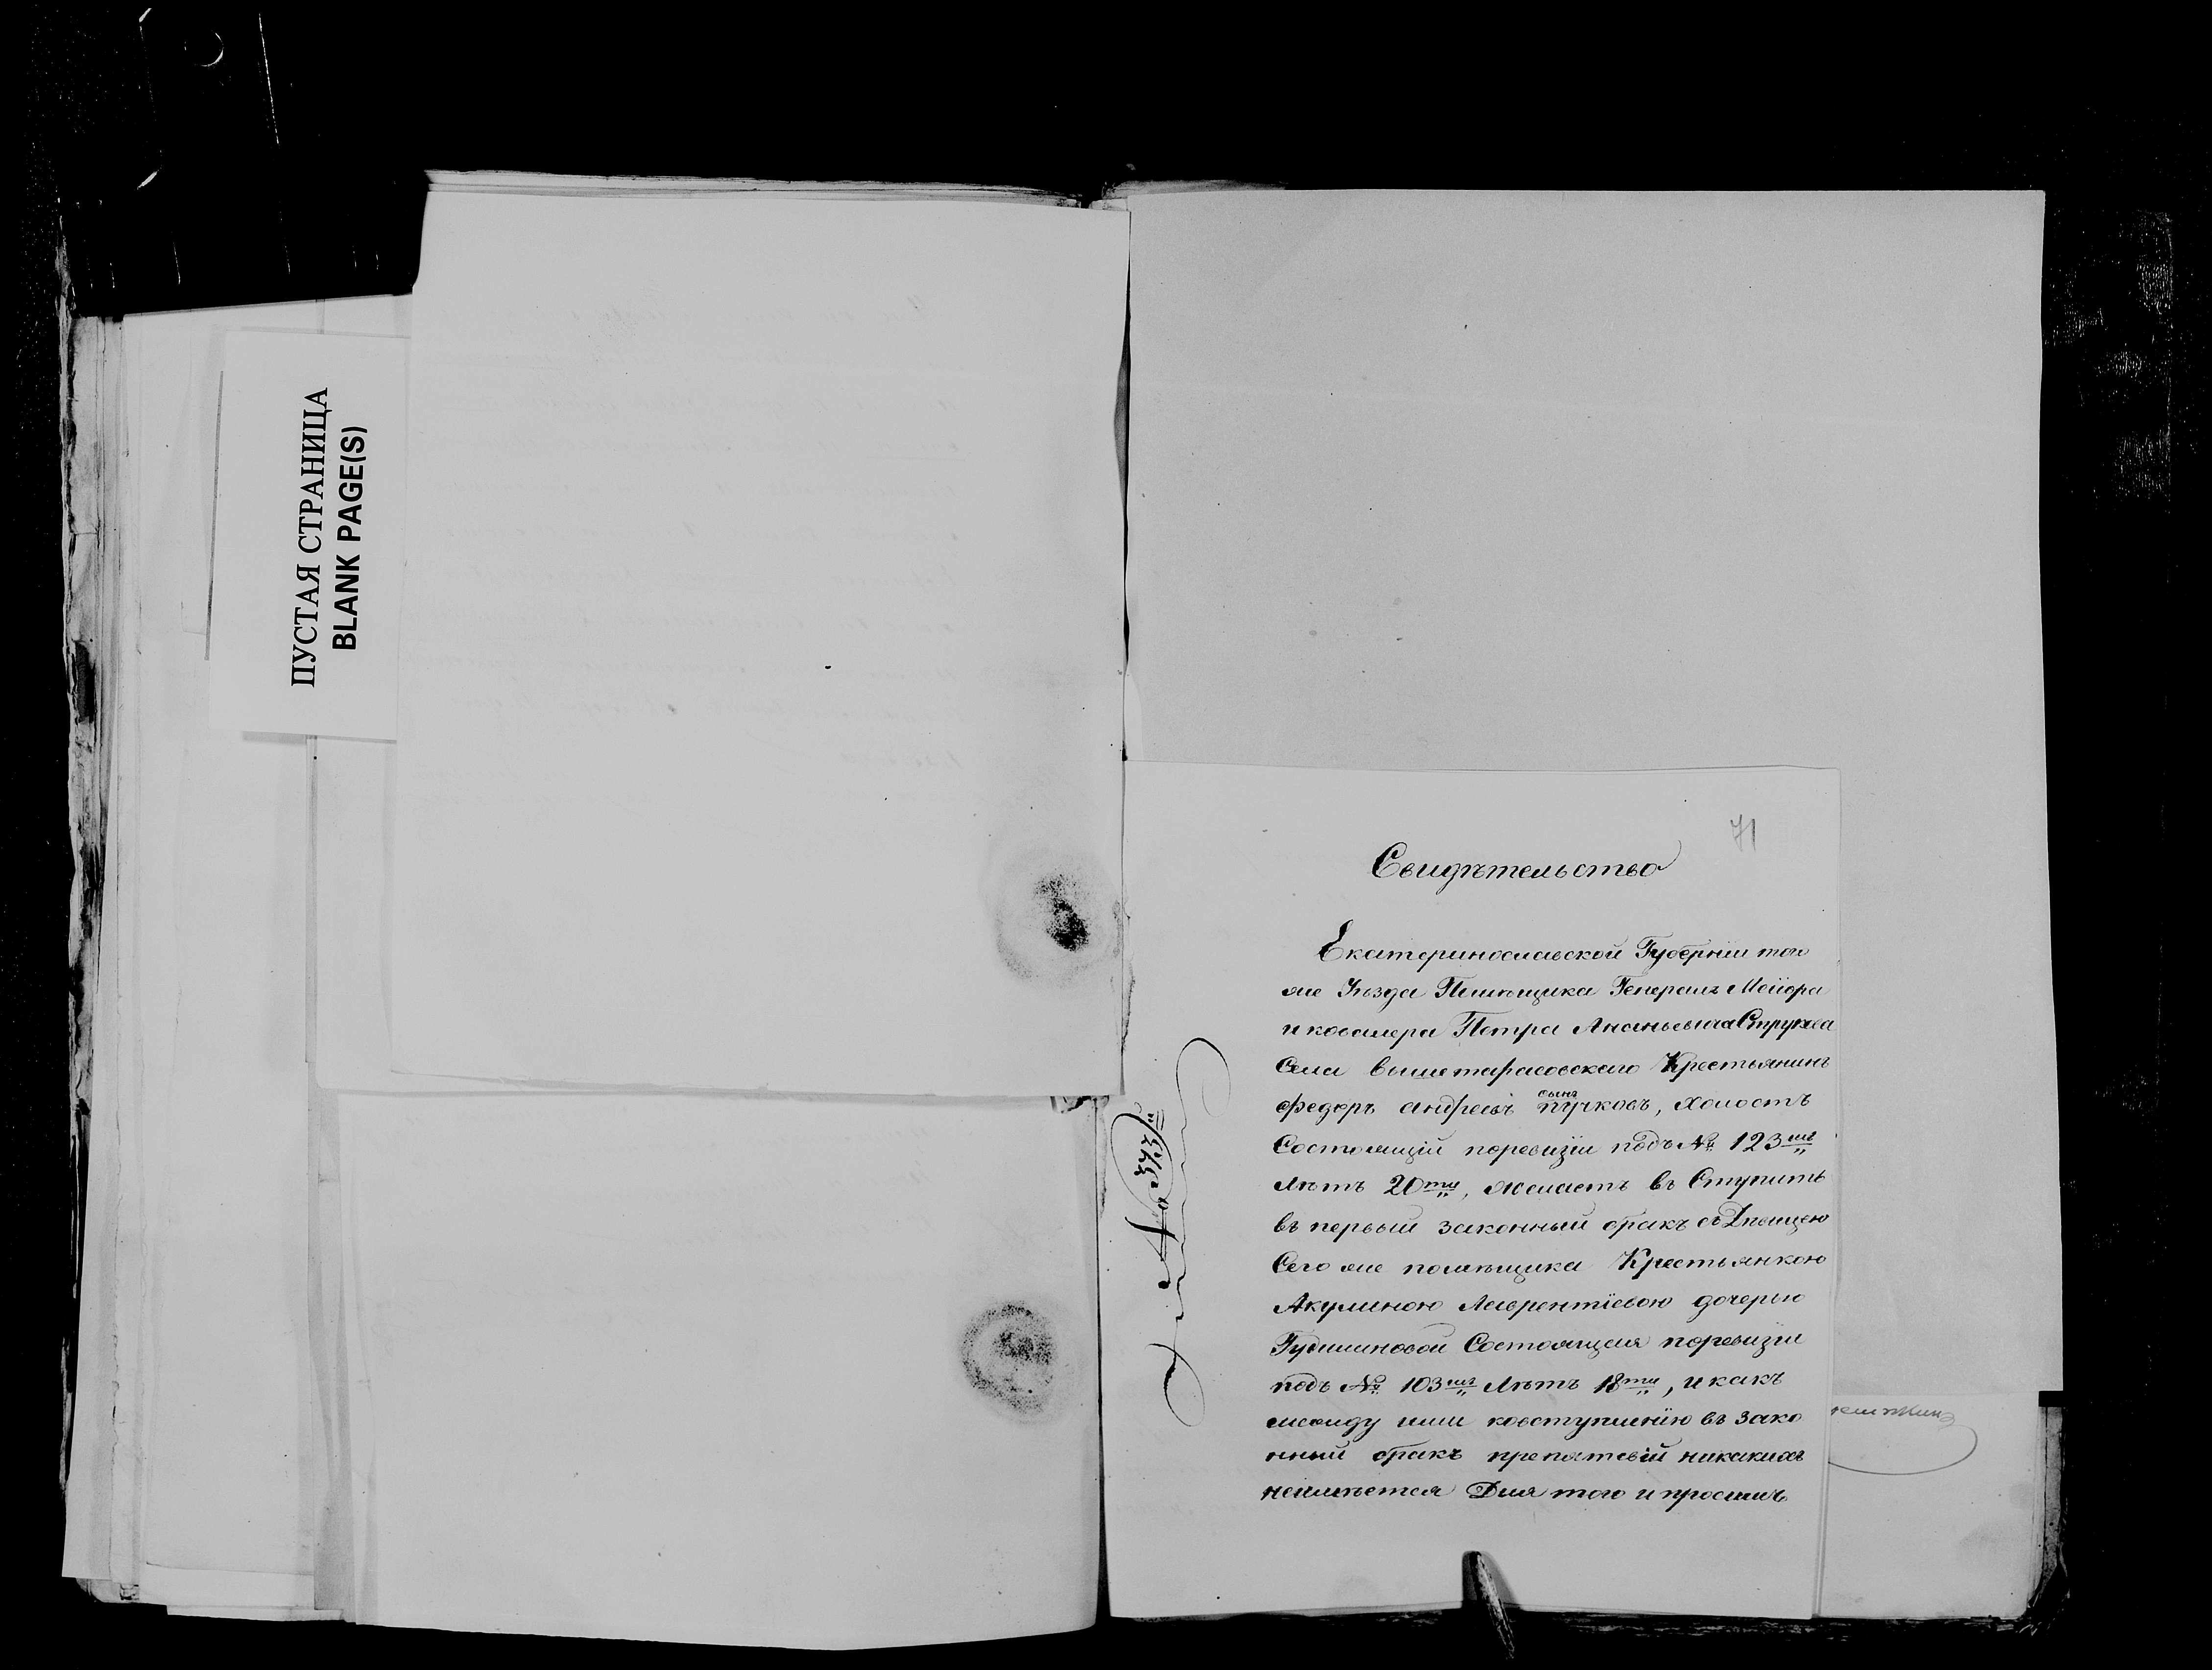 ПУСТАЯ СТРАНИЦА
BLANK PAGE(S)
71
Свидѣтельство
Екатеринославской Губерніи того
же Уѣзда Помѣщика Генералъ Маіора
и кавалера Петра Ананьевича Струкова
Села вышетарасовскаго Крестьянинъ
федоръ андреевъ сынъ пучковъ, холостъ
Состоящій поревизіи подъ № 123мъ
лѣтъ 20ти, желаетъ въ Ступить
въ первый законный бракъ съ Дѣвицею
Сего же помѣщика Крестьянкою
Акулиною Лаврентіевою дочерью
Состоящая поревизіи
подъ № 103мъ лѣтъ 18ти, и какъ
между ими ковступленію въ зако
нный бракъ препятсвій никакихъ
неимѣется Для того и просимъ